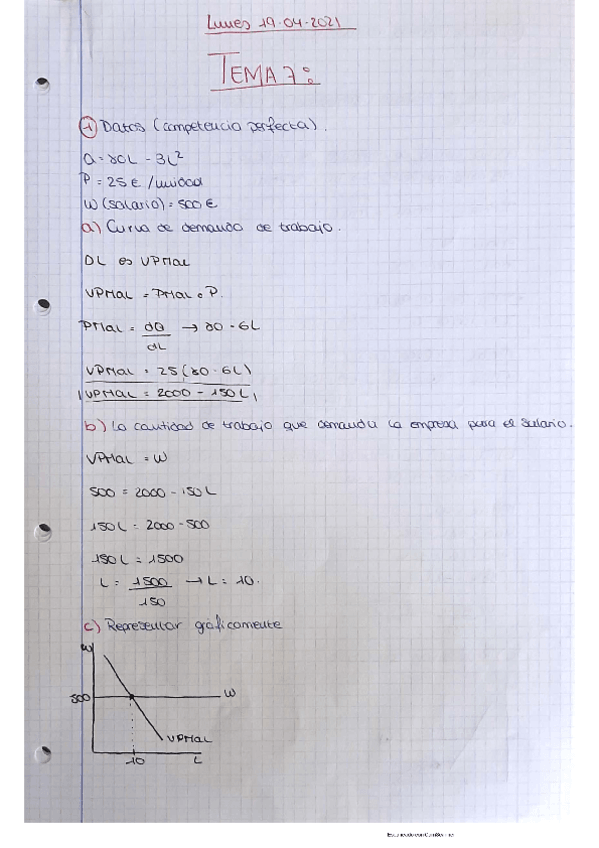 Lunes 19-04-2021
TEMA 7:
1) Datos (competencia perfecta).
Q = 80L - 3L²
P = 25 € /unidad
W (salario) = 500 €
a) Curva de demanda de trabajo.
DL es VPMaL
VPMaL = PMaL · P.
PMaL = dQ → 80 - 6L
dL
VPMaL = 25 (80 - 6L)
VPMaL = 2000 - 150L
b) La cantidad de trabajo que demanda la empresa para el salario.
VPMaL = W
500 = 2000 - 150L
150L = 2000 - 500
150L = 1500
L = 1500 → L = 10.
150
c) Representar gráficamente
W
500
W
VPMaL
10
L
Escaneado con CamScanner